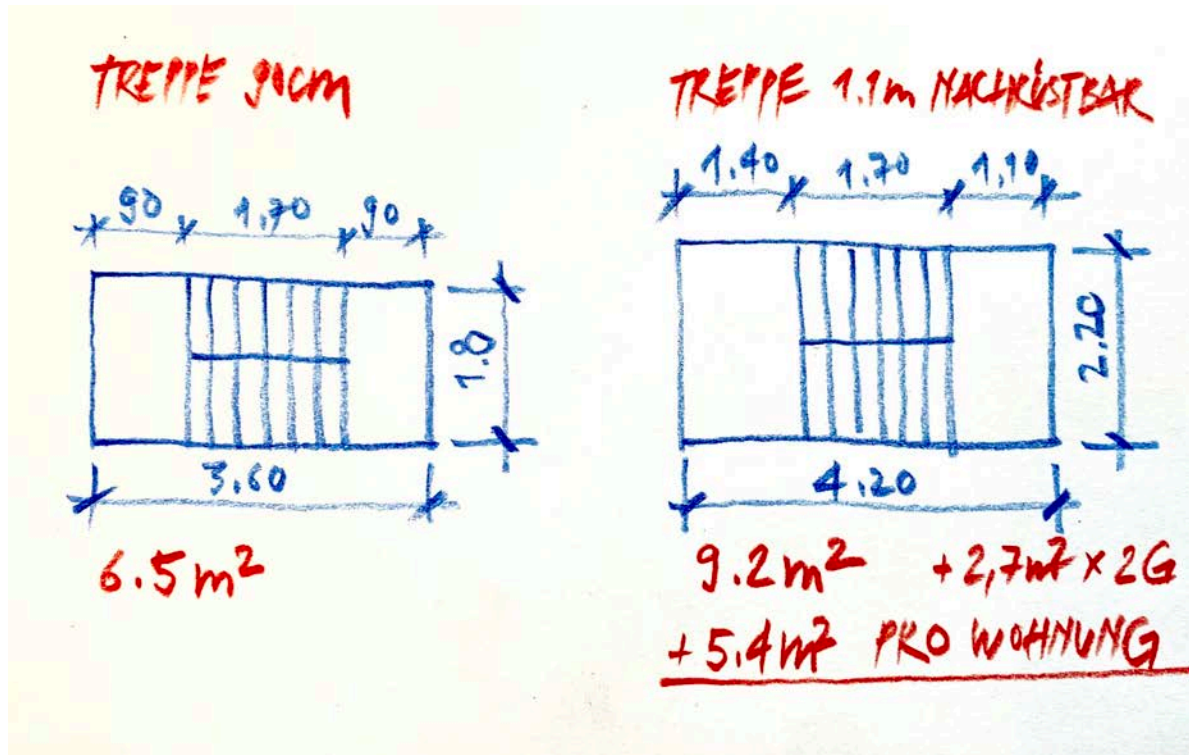 TREPPE 90cm
90 1,70 90
1.8
3.60
6.5m²
TREPPE 1.1m NACHRÜSTBAR
1.40 1.70 1,10
2.20
4.20
9.2m² +2,7m² × 2G
+5.4m² PRO WOHNUNG